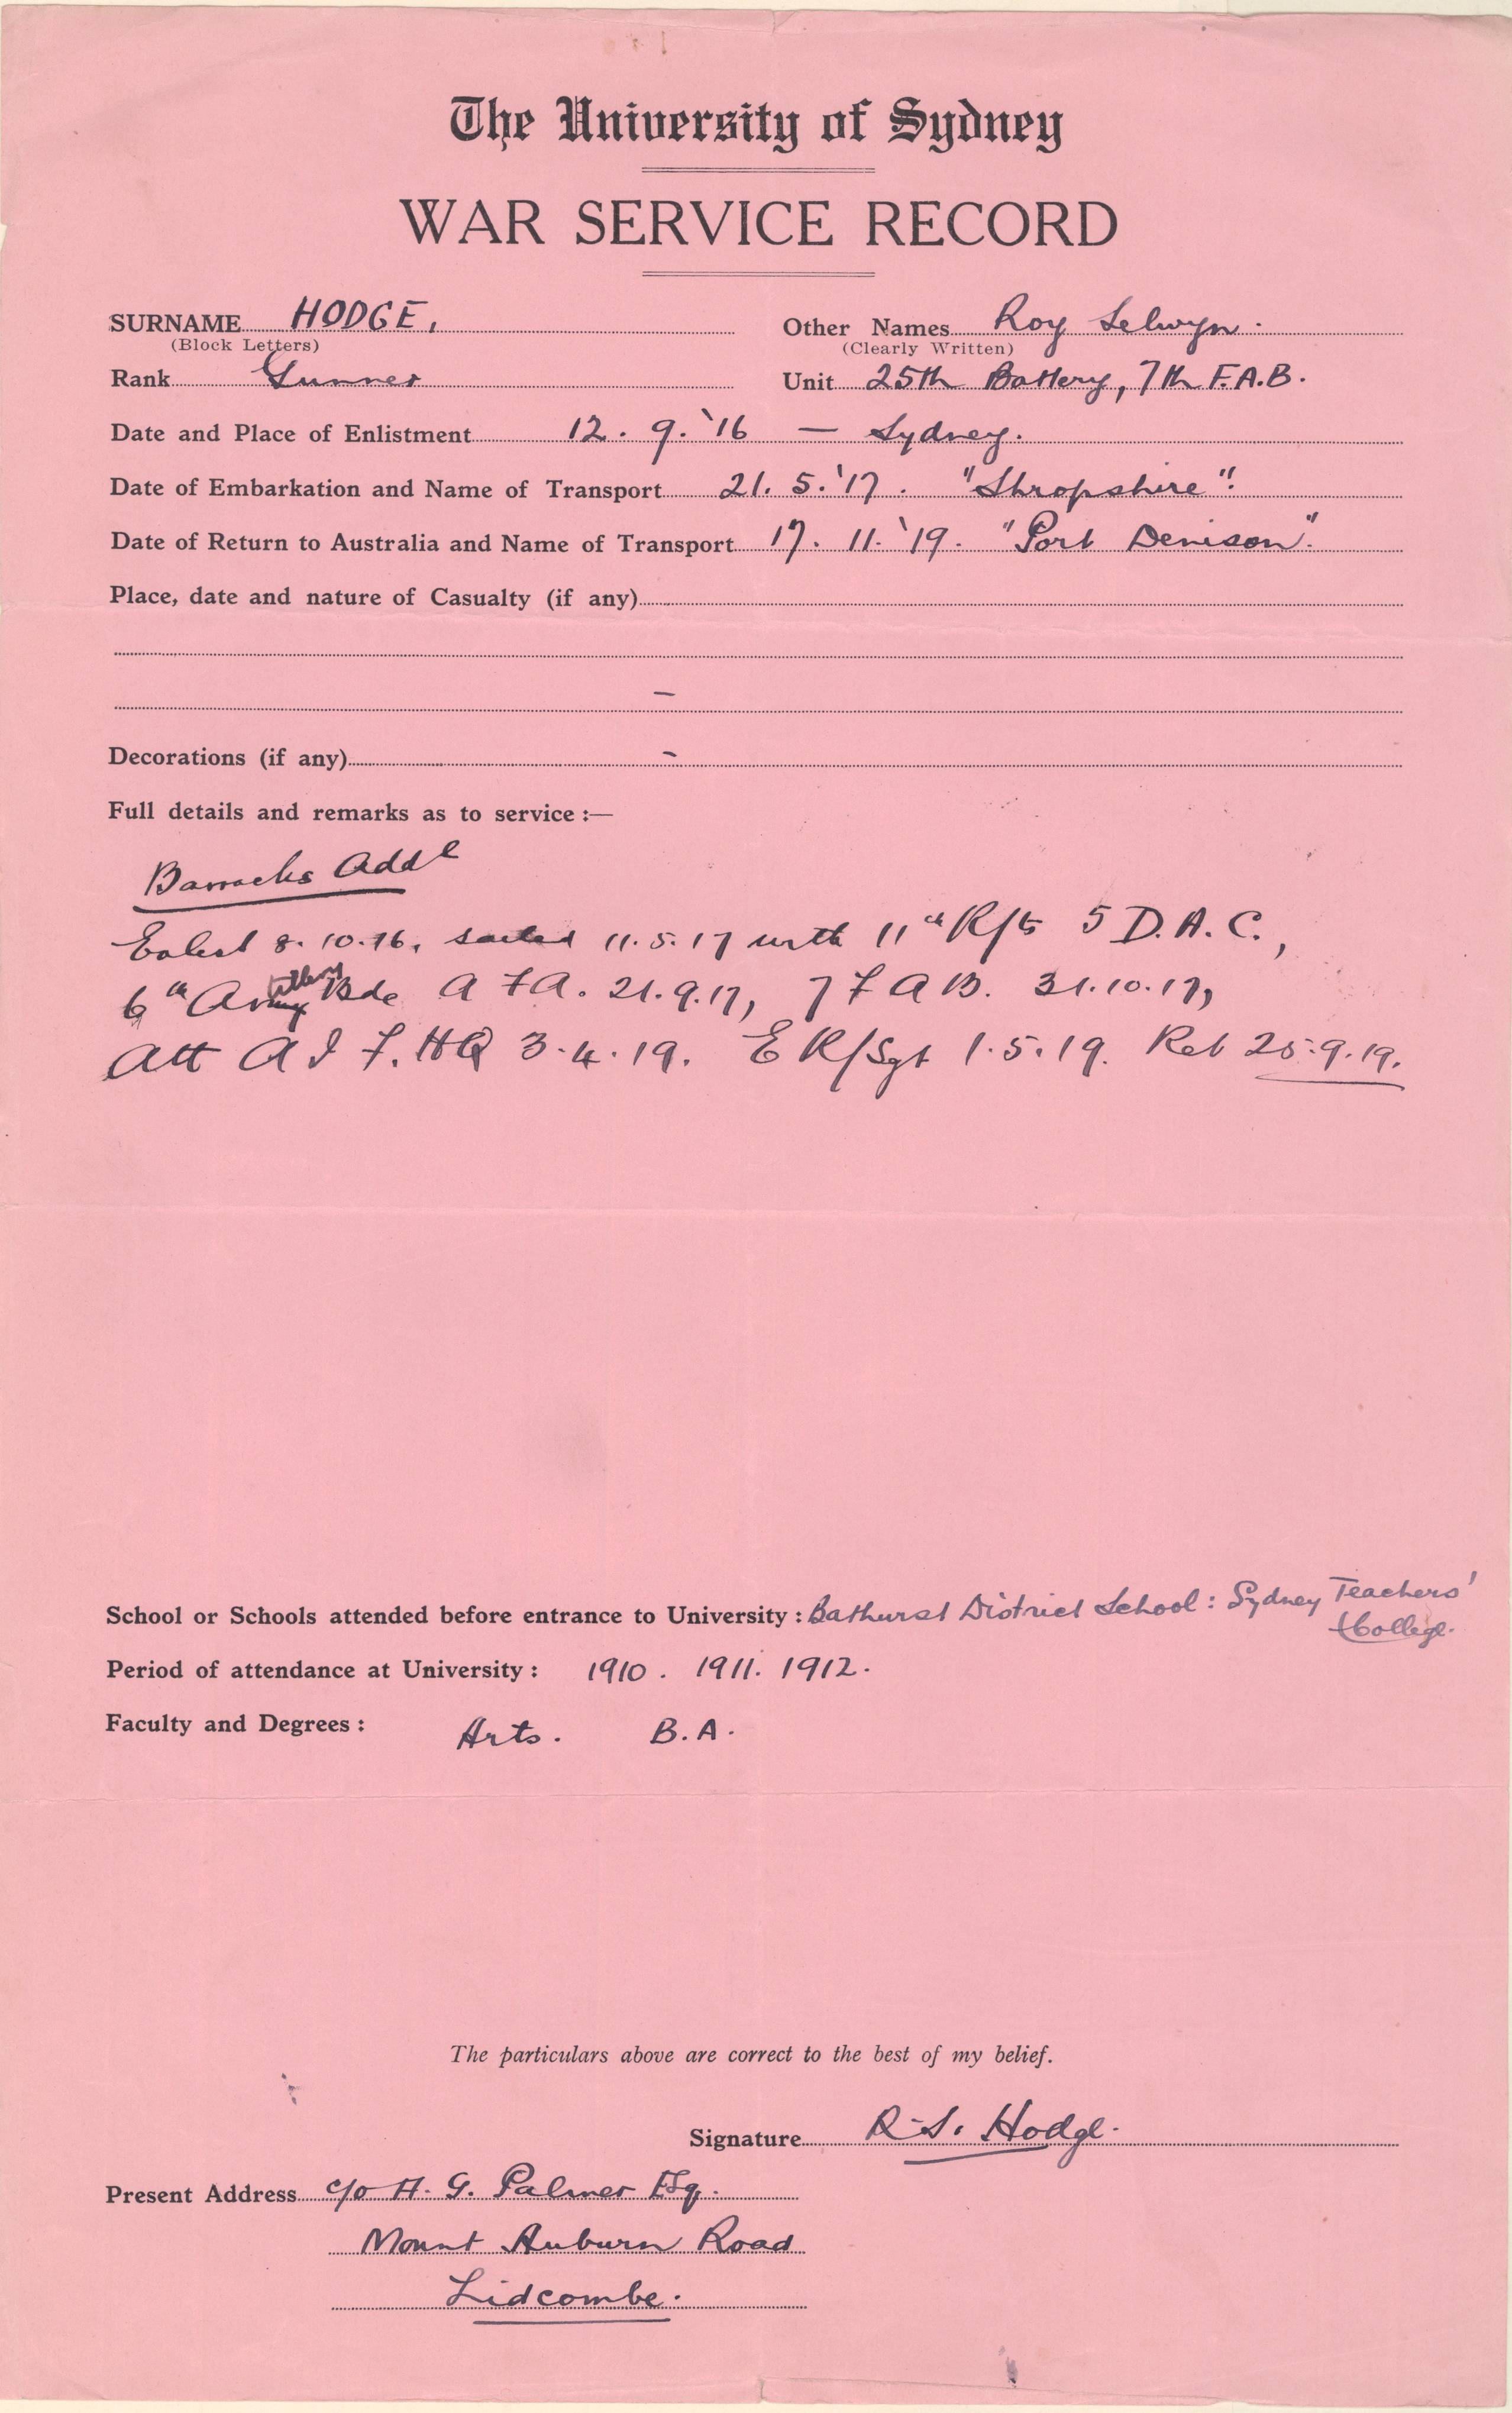 The University of Sydney
WAR SERVICE RECORD
SURNAME HODGE, Other Names Roy Selwyn.
(Block Letters) (Clearly Written)
Rank Gunner Unit 25th Battery, 7th F.A.B.
Date and Place of Enlistment 12. 9. '16 — Sydney.
Date of Embarkation and Name of Transport 21. 5. '17. "Shropshire".
Date of Return to Australia and Name of Transport 17. 11. '19. "Port Denison".
Place, date and nature of Casualty (if any)
–
Decorations (if any) –
Full details and remarks as to service :—
Barracks Addl
Enlist 8.10.16, sailed 11.5.17 with 11th R/fts 5 D.A.C.,
6th Army Bde A F A. 21.9.17, 7 F A B. 31.10.17,
Att A I F. HQ 3.4.19. E R/Sgt 1.5.19. Ret 25.9.19.
School or Schools attended before entrance to University : Bathurst District School : Sydney Teachers'
College.
Period of attendance at University : 1910. 1911. 1912.
Faculty and Degrees : Arts. B.A.
The particulars above are correct to the best of my belief.
Signature R.S. Hodge.
Present Address c/o H. G. Palmer Esq.
Mount Auburn Road
Lidcombe.